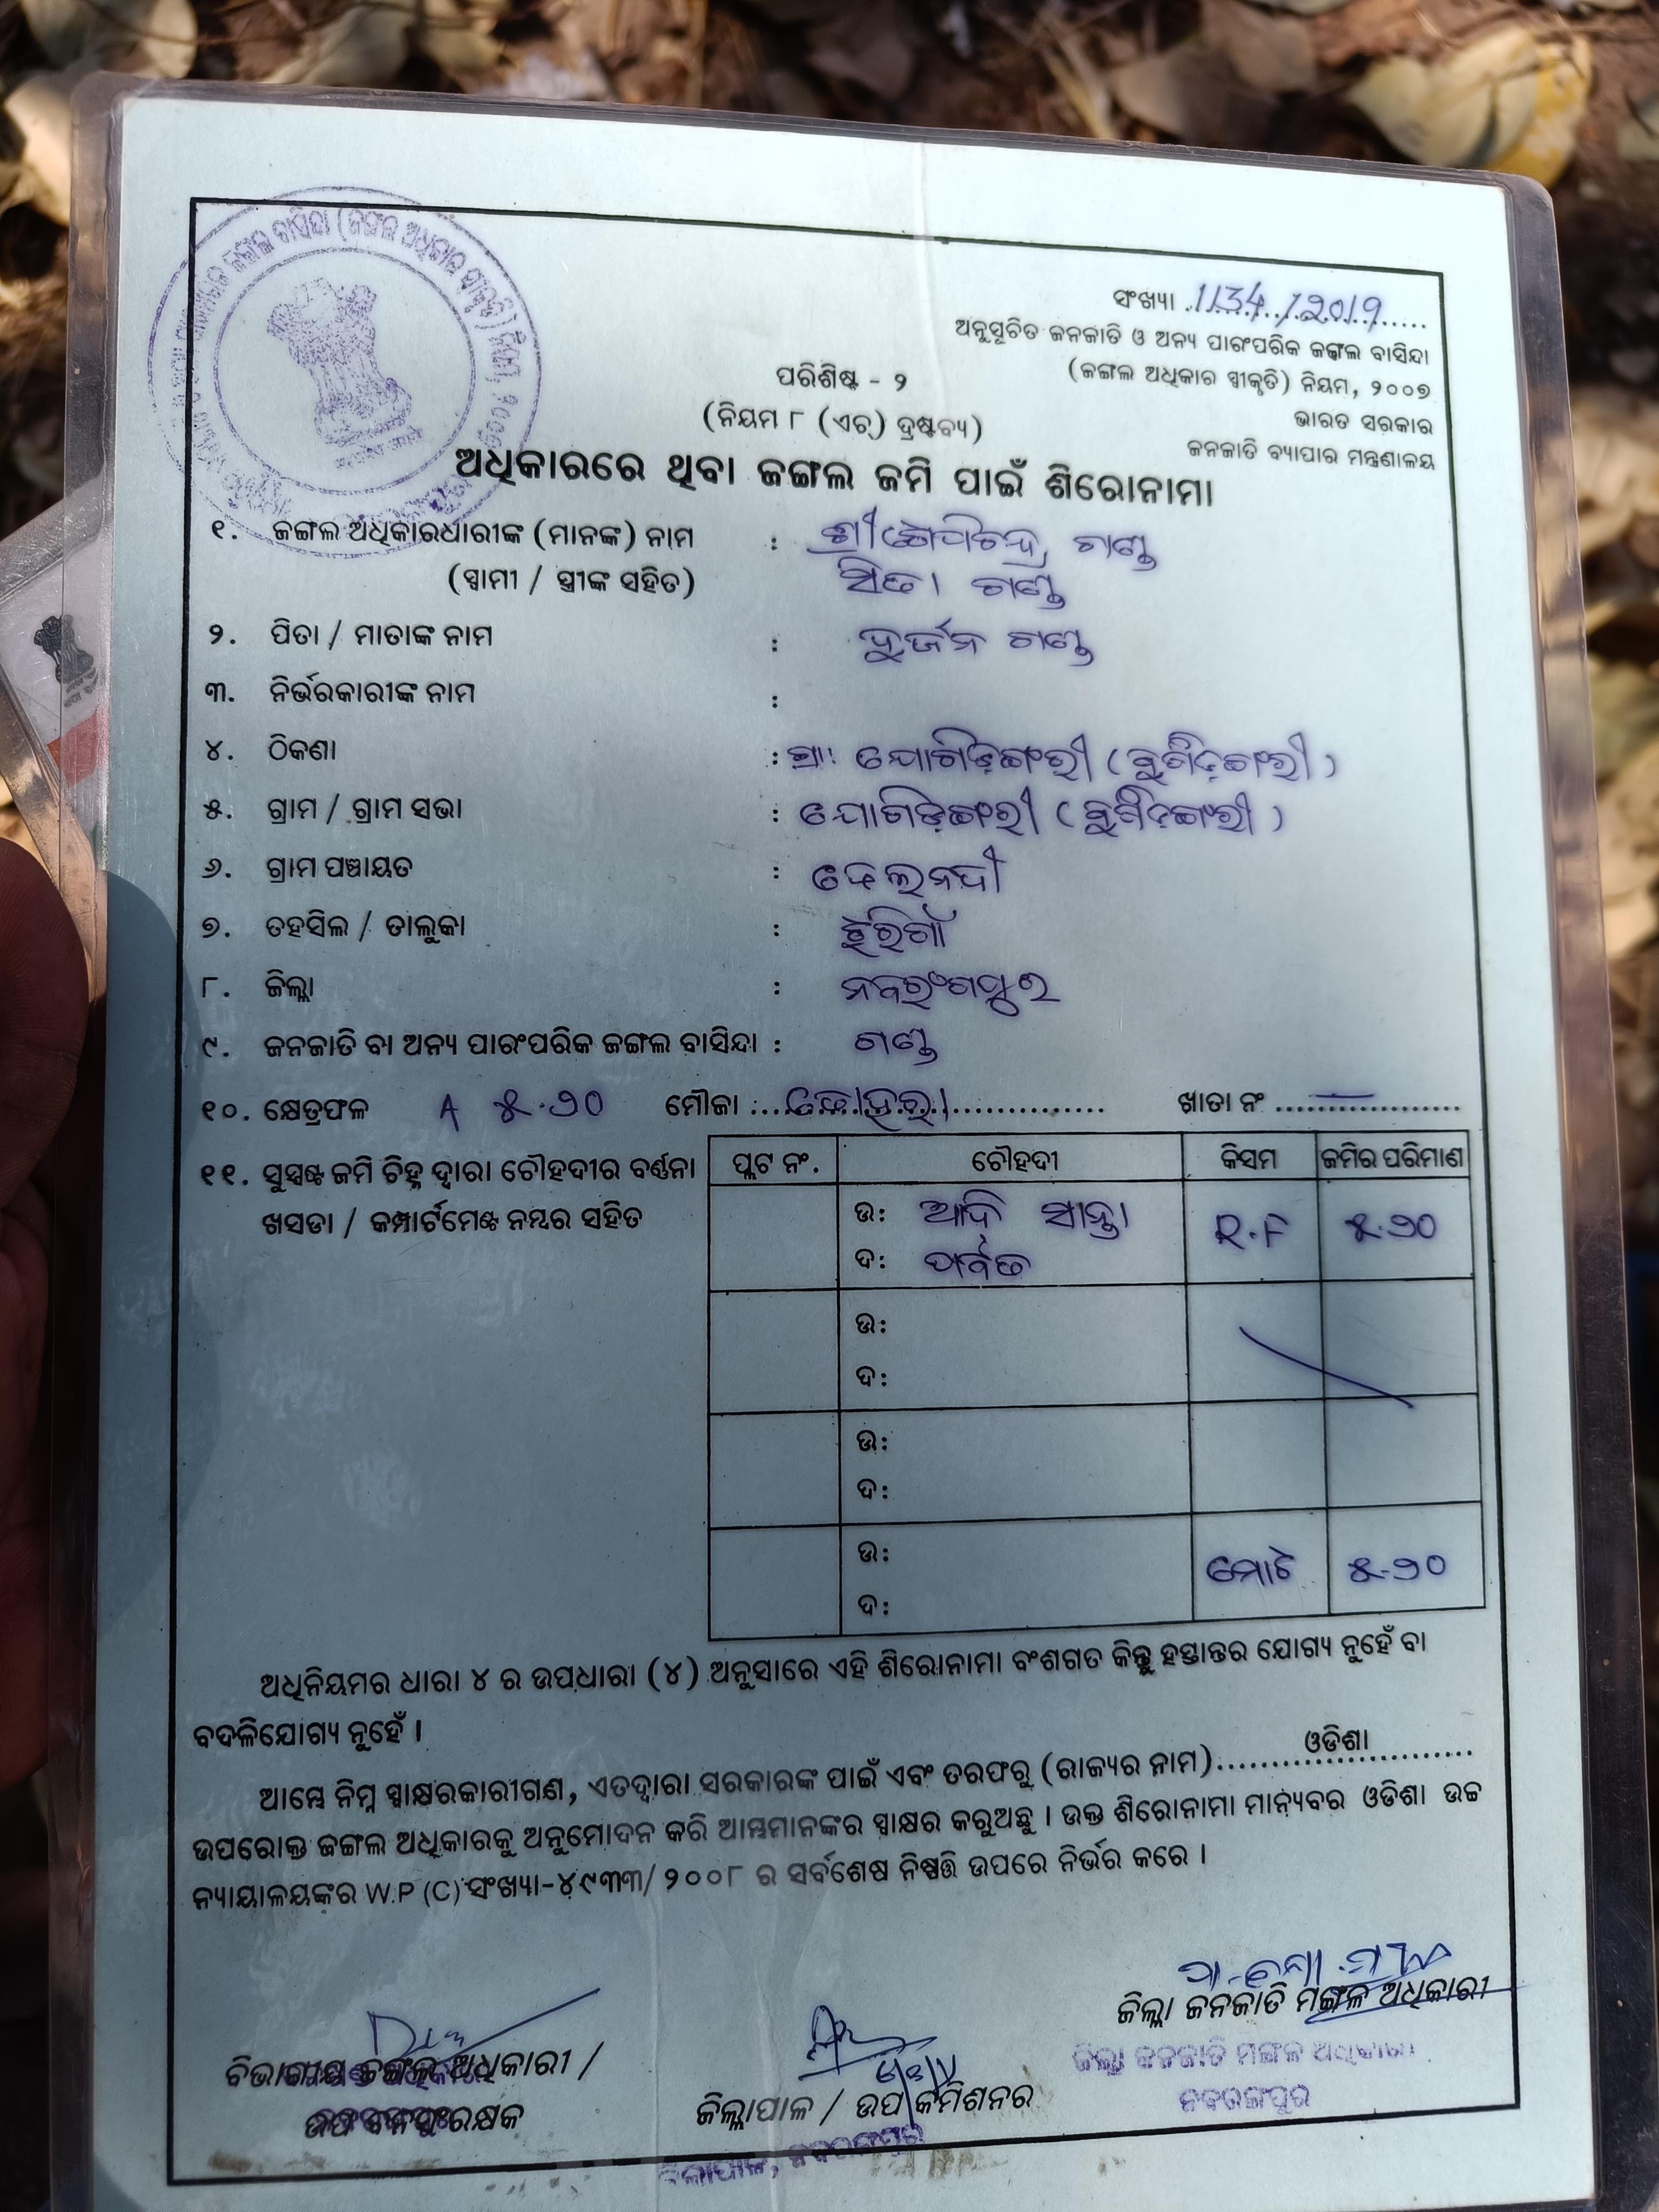 ସଂଖ୍ୟା 1134/2019
ଅନୁସୂଚିତ ଜନଜାତି ଓ ଅନ୍ୟ ପାରଂପରିକ ଜଙ୍ଗଲ ବାସିନ୍ଦା
(ଜଙ୍ଗଲ ଅଧିକାର ସ୍ୱୀକୃତି) ନିୟମ, ୨୦୦୭
ଭାରତ ସରକାର
ଜନଜାତି ବ୍ୟାପାର ମନ୍ତ୍ରଣାଳୟ
ପରିଶିଷ୍ଟ - ୨
(ନିୟମ ୮ (ଏଚ୍) ଦ୍ରଷ୍ଟବ୍ୟ)
ଅଧିକାରରେ ଥିବା ଜଙ୍ଗଲ ଜମି ପାଇଁ ଶିରୋନାମା
୧. ଜଙ୍ଗଲ ଅଧିକାରଧାରୀଙ୍କ (ମାନଙ୍କ) ନାମ : ଶ୍ରୀ ଗଣ୍ଡ
(ସ୍ୱାମୀ / ସ୍ତ୍ରୀଙ୍କ ସହିତ) ସିତା ଗଣ୍ଡ
୨. ପିତା / ମାତାଙ୍କ ନାମ : ଦୁର୍ଜନ ଗଣ୍ଡ
୩. ନିର୍ଭରକାରୀଙ୍କ ନାମ :
୪. ଠିକଣା : ଗ୍ରା: ଯୋଗିଡ଼ଙ୍ଗରୀ
୫. ଗ୍ରାମ / ଗ୍ରାମ ସଭା : ଯୋଗିଡ଼ଙ୍ଗରୀ
୬. ଗ୍ରାମ ପଞ୍ଚାୟତ :
୭. ତହସିଲ / ତାଲୁକା : ଝରିଗାଁ
୮. ଜିଲ୍ଲା : ନବରଂଗପୁର
୯. ଜନଜାତି ବା ଅନ୍ୟ ପାରଂପରିକ ଜଙ୍ଗଲ ବାସିନ୍ଦା : ଗଣ୍ଡ
୧୦. କ୍ଷେତ୍ରଫଳ A ୫.୨୦ ମୌଜା ଖାତା ନଂ —
୧୧. ସୁସ୍ପଷ୍ଟ ଜମି ଚିହ୍ନ ଦ୍ୱାରା ଚୌହଦୀର ବର୍ଣ୍ଣନା
ଖସଡା / କମ୍ପାର୍ଟମେଣ୍ଟ ନମ୍ବର ସହିତ
ପ୍ଲଟ ନଂ. ଚୌହଦୀ କିସମ ଜମିର ପରିମାଣ
ଉ: ଆଦି ସାନ୍ତା R.F ୫.୨୦
ଦ: ପର୍ବତ
ଉ:
ଦ:
ଉ:
ଦ:
ଉ: ମୋଟ ୫.୨୦
ଦ:
ଅଧିନିୟମର ଧାରା ୪ ର ଉପଧାରା (୪) ଅନୁସାରେ ଏହି ଶିରୋନାମା ବଂଶଗତ କିନ୍ତୁ ହସ୍ତାନ୍ତର ଯୋଗ୍ୟ ନୁହେଁ ବା
ବଦଳିଯୋଗ୍ୟ ନୁହେଁ ।
ଆମ୍ଭେ ନିମ୍ନ ସ୍ୱାକ୍ଷରକାରୀଗଣ, ଏତଦ୍ୱାରା ସରକାରଙ୍କ ପାଇଁ ଏବଂ ତରଫରୁ (ରାଜ୍ୟର ନାମ) ଓଡିଶା
ଉପରୋକ୍ତ ଜଙ୍ଗଲ ଅଧିକାରକୁ ଅନୁମୋଦନ କରି ଆମ୍ଭମାନଙ୍କର ସ୍ୱାକ୍ଷର କରୁଅଛୁ । ଉକ୍ତ ଶିରୋନାମା ମାନ୍ୟବର ଓଡିଶା ଉଚ୍ଚ
ନ୍ୟାୟାଳୟଙ୍କର W.P (C) ସଂଖ୍ୟା-୪୯୩୩/ ୨୦୦୮ ର ସର୍ବଶେଷ ନିଷ୍ପତ୍ତି ଉପରେ ନିର୍ଭର କରେ ।
ବିଭାଗୀୟ ଜଙ୍ଗଲ ଅଧିକାରୀ /
ଉପ ବନସଂରକ୍ଷକ
ଜିଲ୍ଲାପାଳ / ଉପ କମିଶନର
ଜିଲ୍ଲାପାଳ, ନବରଙ୍ଗପୁର
ଜିଲ୍ଲା ଜନଜାତି ମଙ୍ଗଳ ଅଧିକାରୀ
ଜିଲ୍ଲା ଜନଜାତି ମଙ୍ଗଳ ଅଧିକାରୀ
ନବରଙ୍ଗପୁର